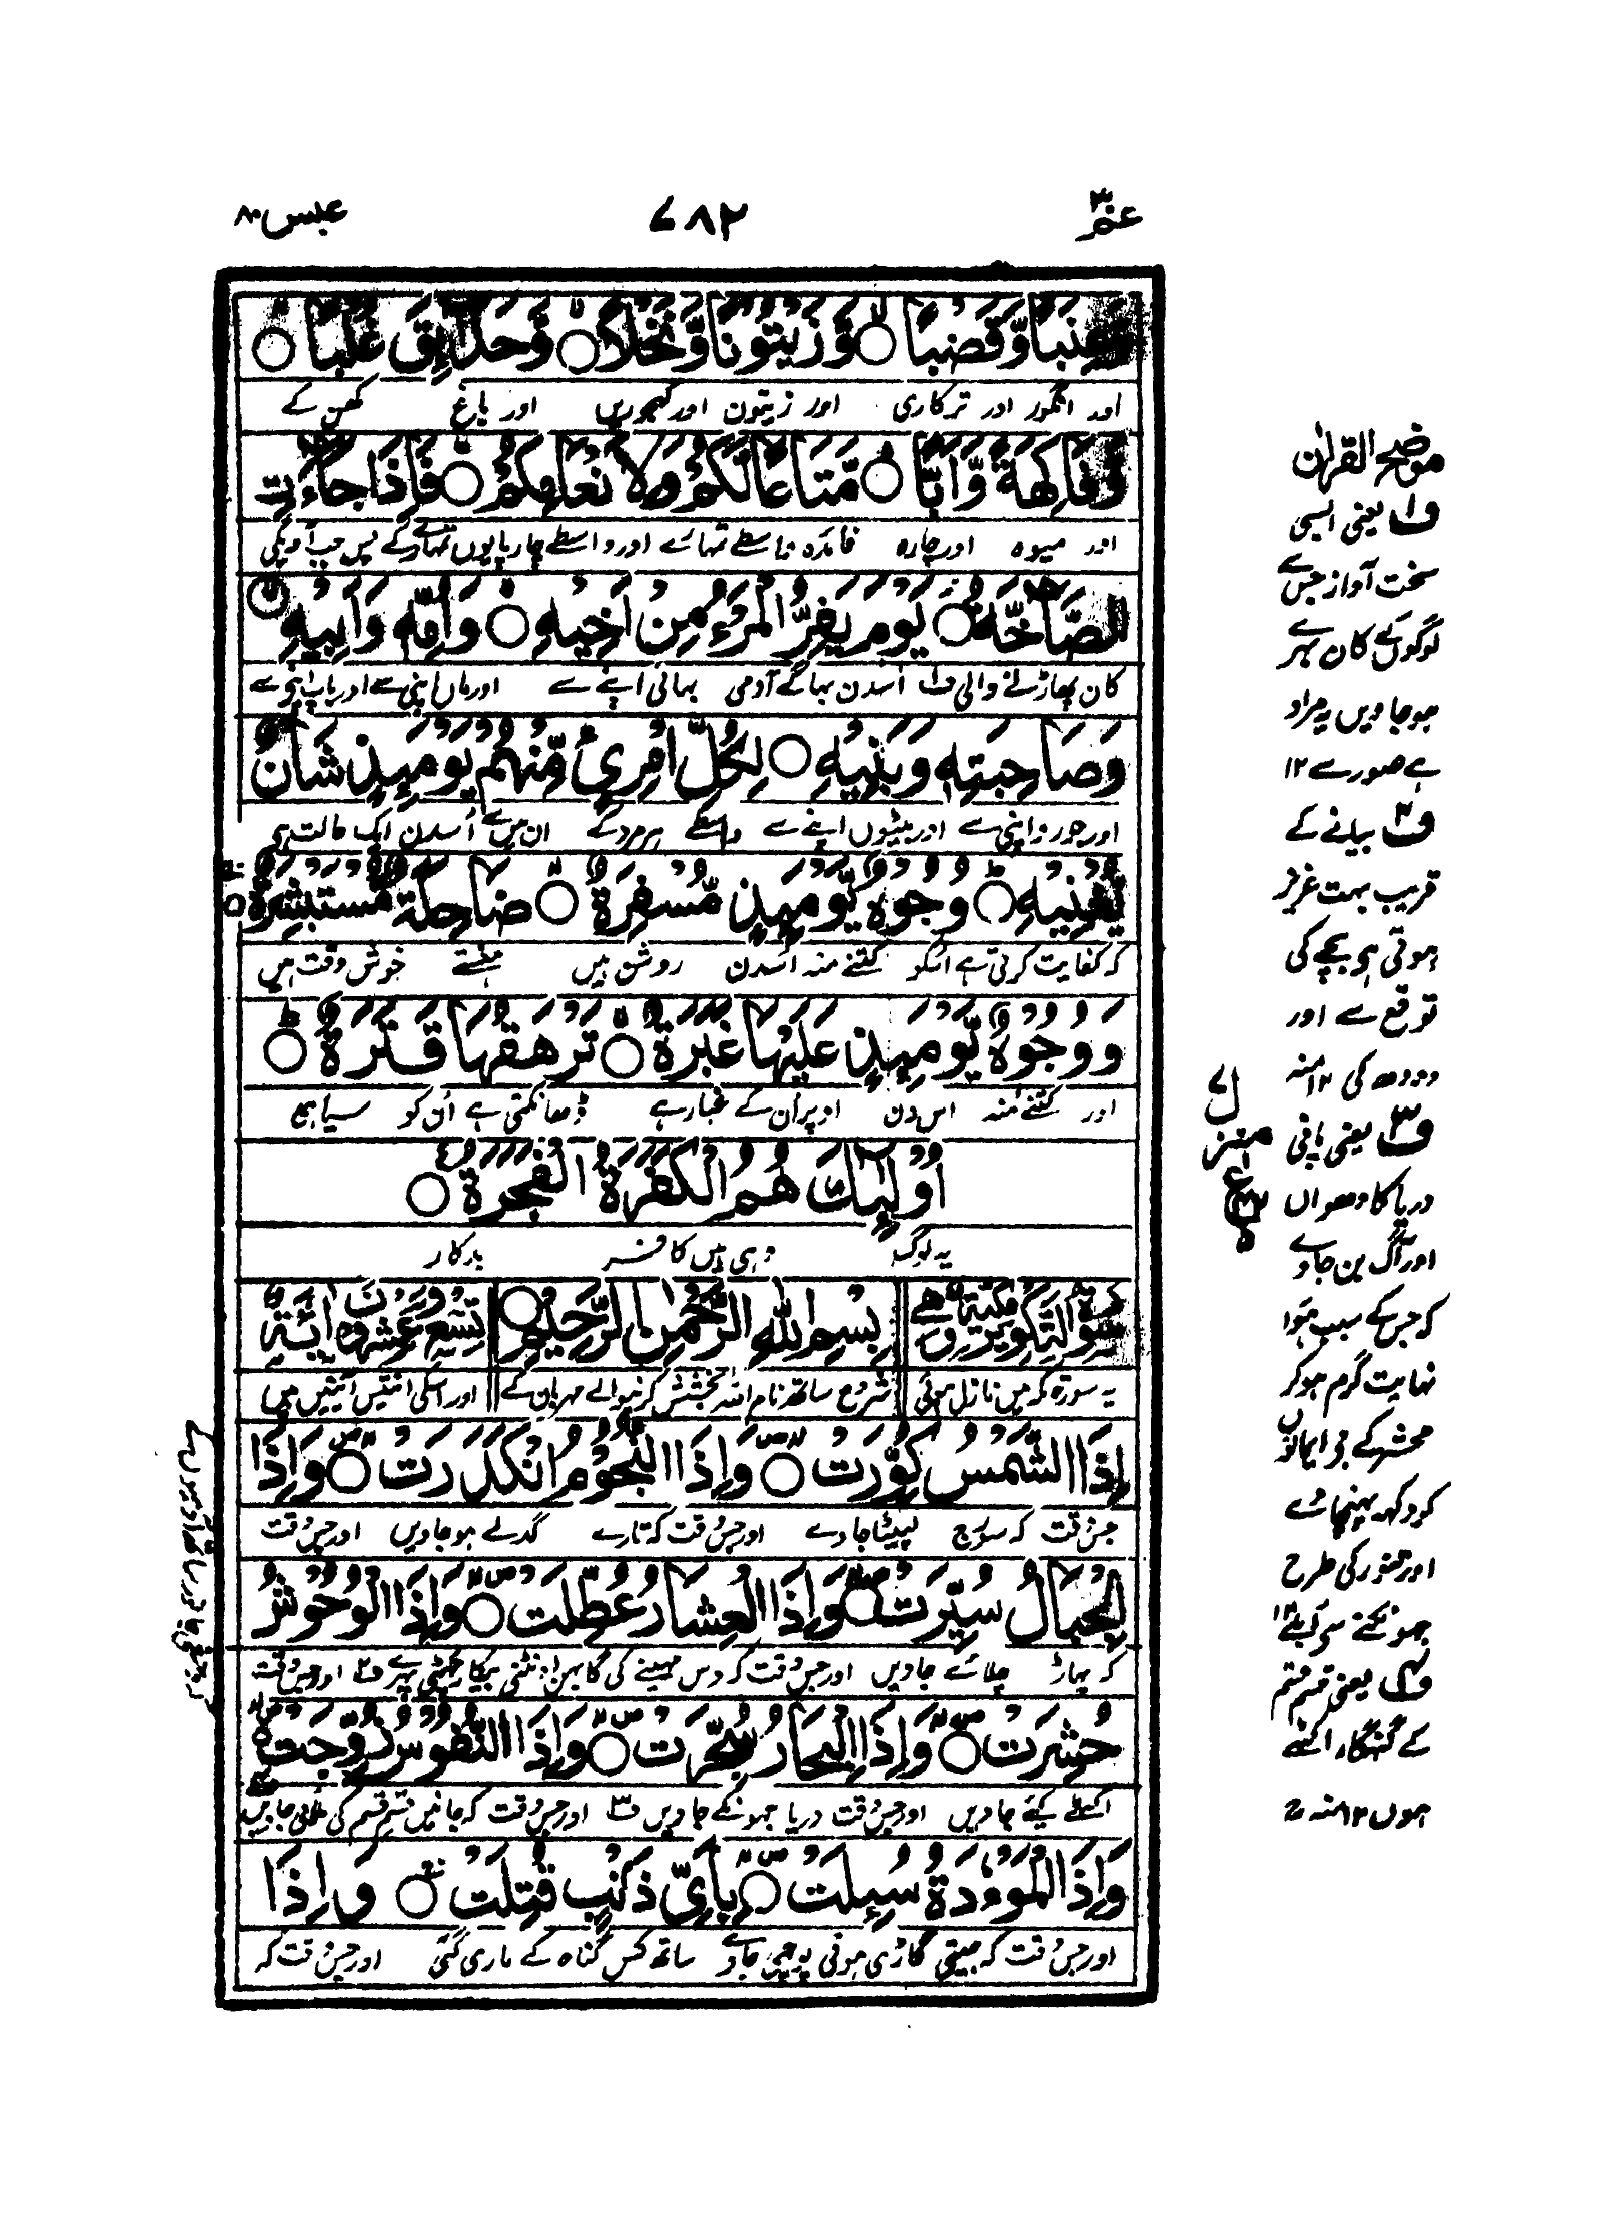 عم ٣٠
٧٨٢
عبس ٨٠
وَّعِنَبًا وَّقَضْبًا ۙ○ وَّزَيْتُوْنًا وَّنَخْلًا ۙ○ وَّحَدَآئِقَ غُلْبًا ۙ○
اور انگور اور ترکاری اور زیتون اور کھجوریں اور باغ گھن کے
وَّفَاكِهَةً وَّاَبًّا ۙ○ مَّتَاعًا لَّكُمْ وَلِاَنْعَامِكُمْ ۙ○ فَاِذَا جَآءَتِ
اور میوہ اور چارہ فائدہ واسطے تمہارے اور واسطے چارپایوں تمہارے کے پس جب آویگی
الصَّآخَّةُ ○ يَوْمَ يَفِرُّ الْمَرْءُ مِنْ اَخِيْهِ ۙ○ وَاُمِّهٖ وَاَبِيْهِ ۙ○
کان پھاڑنے والی ف۱ اُسدن بھاگے آدمی بھائی اپنے سے اور ماں اپنی سے اور باپ اپنے سے
وَصَاحِبَتِهٖ وَبَنِيْهِ ○ لِكُلِّ امْرِئٍ مِّنْهُمْ يَوْمَئِذٍ شَاْنٌ
اور جورو اپنی سے اور بیٹوں اپنے سے واسطے ہر مرد کے ان میں سے اُسدن ایک حالت ہی
يُّغْنِيْهِ ○ وُجُوْهٌ يَّوْمَئِذٍ مُّسْفِرَةٌ ۙ○ ضَاحِكَةٌ مُّسْتَبْشِرَةٌ ○
کہ کفایت کرتی ہے اسکو کتنے منہ اسدن روشن ہیں ہنستے خوش وقت ہیں
وَوُجُوْهٌ يَّوْمَئِذٍ عَلَيْهَا غَبَرَةٌ ۙ○ تَرْهَقُهَا قَتَرَةٌ ○
اور کتنے مُنہ اس دن اوپر اُن کے غبار ہے ڈھانکتی ہے اُن کو سیاہی
اُولٰٓئِكَ هُمُ الْكَفَرَةُ الْفَجَرَةُ ○
یہ لوگ وہی ہیں کافر بدکار
سورة التكوير مكية وهي بِسْمِ اللّٰهِ الرَّحْمٰنِ الرَّحِيْمِ ○ تسع وعشرون اية
یہ سورۃ مکہ میں نازل ہوئی شروع ساتھ نام اللہ بخشش کرنیوالے مہربان کے اور اسکی انتیس آیتیں ہیں
اِذَا الشَّمْسُ كُوِّرَتْ ○ وَاِذَا النُّجُوْمُ انْكَدَرَتْ ○ وَاِذَا
جس وقت کہ سورج لپیٹا جاوے اور جس وقت کہ تارے گدلے ہو جاویں اور جس وقت
الْجِبَالُ سُيِّرَتْ ○ وَاِذَا الْعِشَارُ عُطِّلَتْ ○ وَاِذَا الْوُحُوْشُ
کہ پہاڑ چلائے جاویں اور جس وقت کہ دس مہینے کی گابھن اونٹنی بیکار چھٹی پھرے ف۲ اور جس وقت
حُشِرَتْ ○ وَاِذَا الْبِحَارُ سُجِّرَتْ ○ وَاِذَا النُّفُوْسُ زُوِّجَتْ ○
اکٹھے کئے جاویں اور جس وقت دریا جھونکے جاویں ف۳ اور جس وقت کہ جانیں قسم قسم کی ملائی جاویں
وَاِذَا الْمَوْءٗدَةُ سُئِلَتْ ○ بِاَيِّ ذَنْۢبٍ قُتِلَتْ ○ وَاِذَا
اور جس وقت کہ جیتی گاڑی ہوئی پوچھی جاوے ساتھ کس گناہ کے ماری گئی اور جس وقت کہ
موضح القرآن
ف۱ یعنی ایسی
سخت آواز جس سے
لوگوں کے کان بہرے
ہوجاویں یہ مراد
ہے صور سے ١٢
ف۲ بیانے کے
قریب بہت عزیز
ہوتی ہی بچے کی
توقع سے اور
دودھ کی ١٢ منہ
ف۳ یعنی پانی
دریا کا دھواں
اور آگ بن جاوے
کہ جس کے سبب ہوا
نہایت گرم ہو کر
محشر کے بے ایمانوں
کو دکھ پہنچائے
اور تنور کی طرح
جھونکنے سے
ف۴ یعنی قسم قسم
کے گنہگار اکٹھے
ہوں ١٢ منہ
منزل ٧